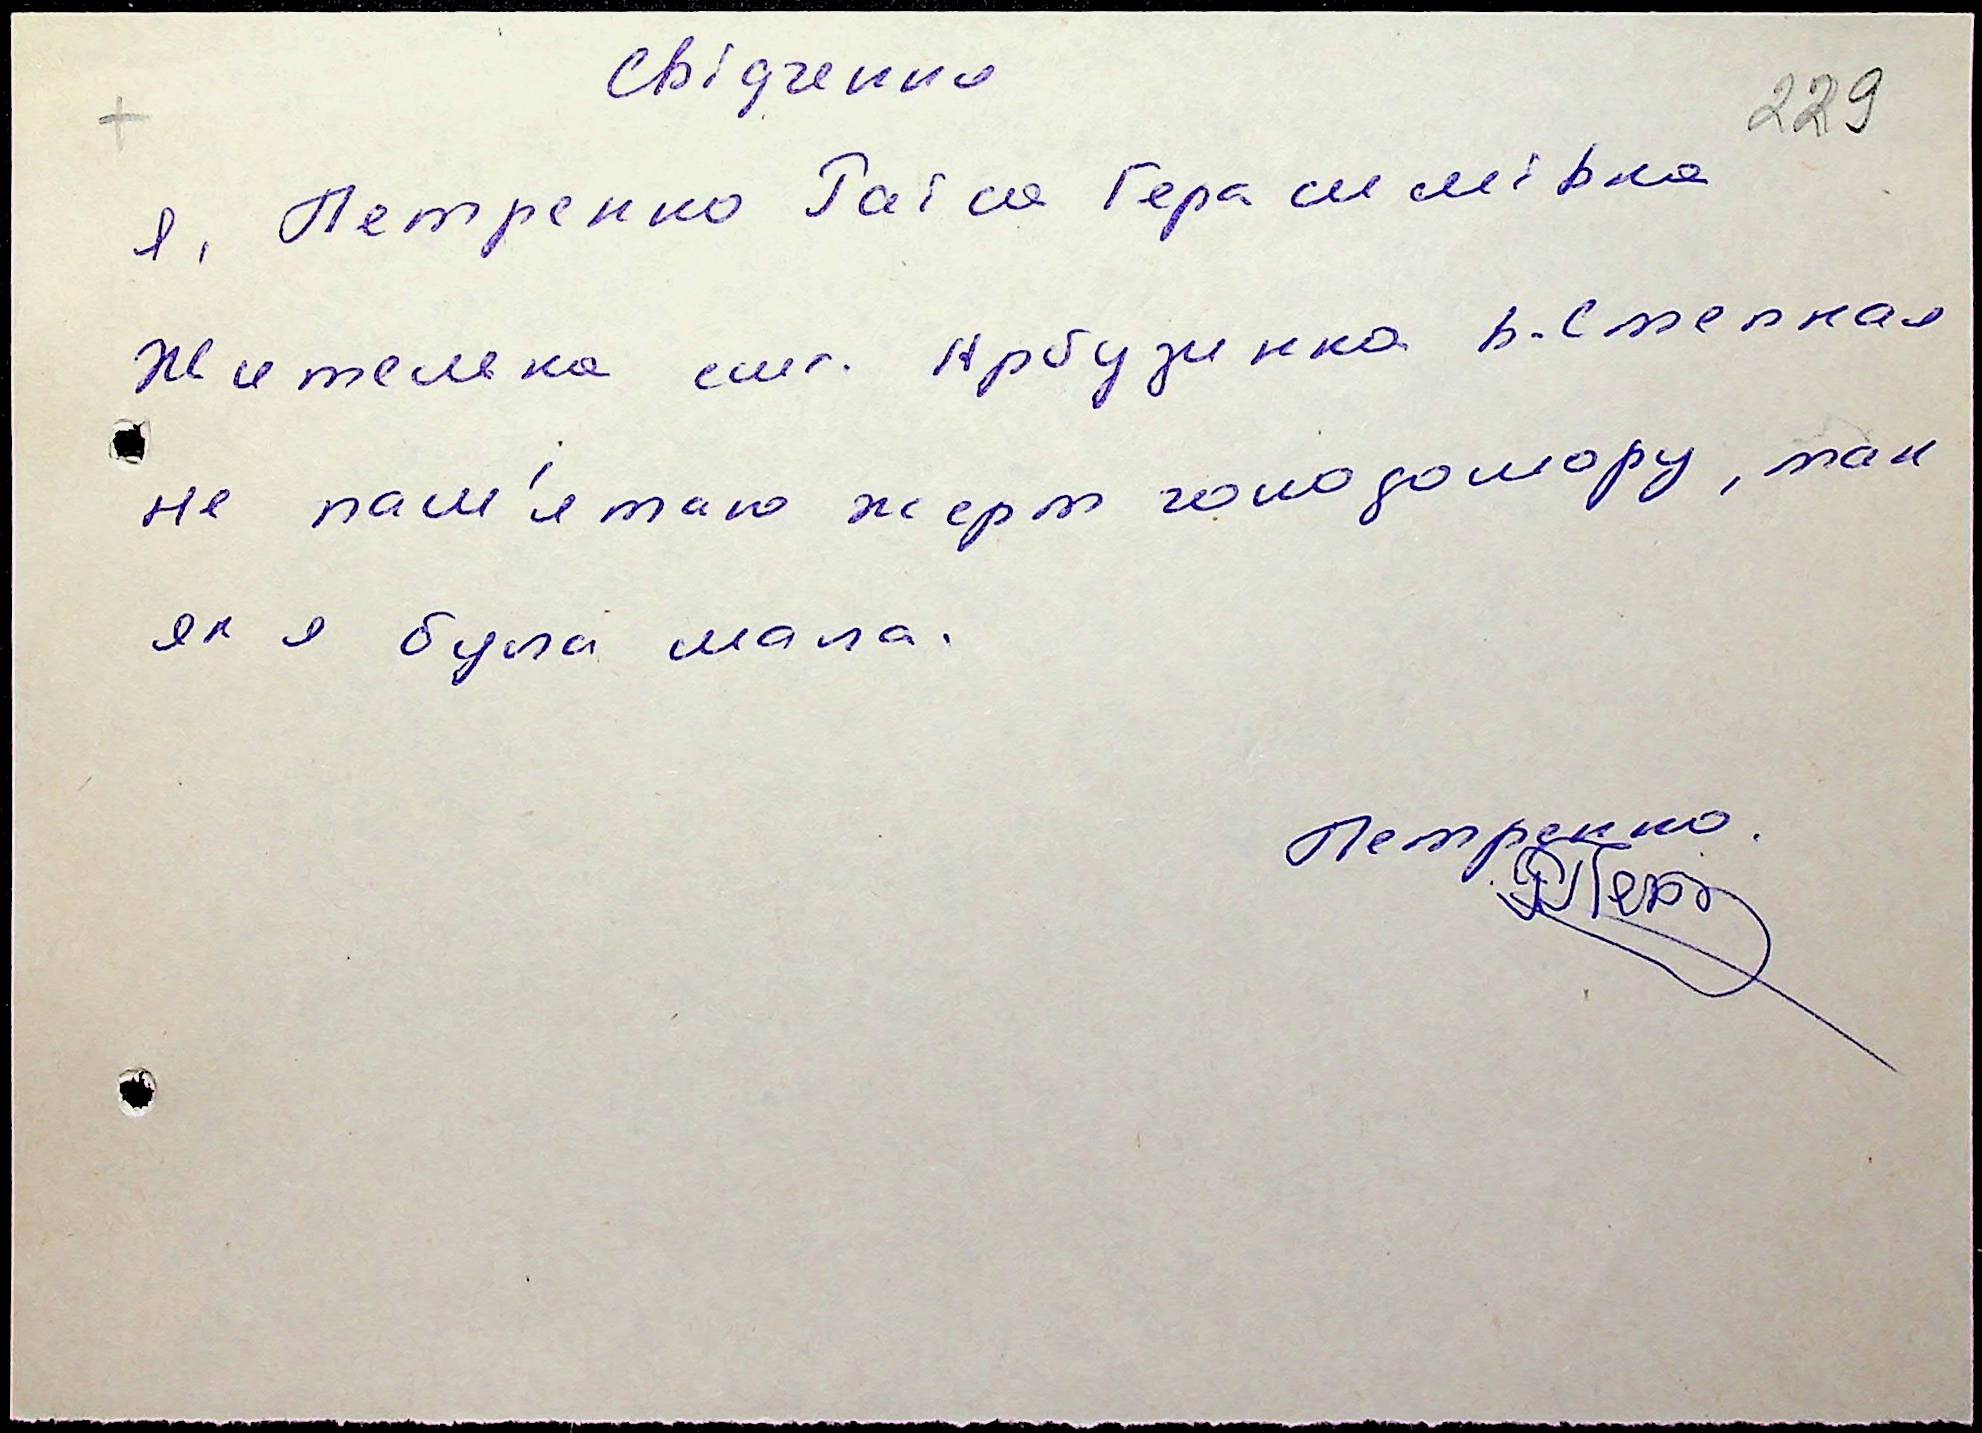 Свідченко
229
Я, Петренко Раіса Герасимівна
Жителька смт. Арбузинка в. Степная
не пам'ятаю жерт голодомору, так
як я була мала.
Петренко.